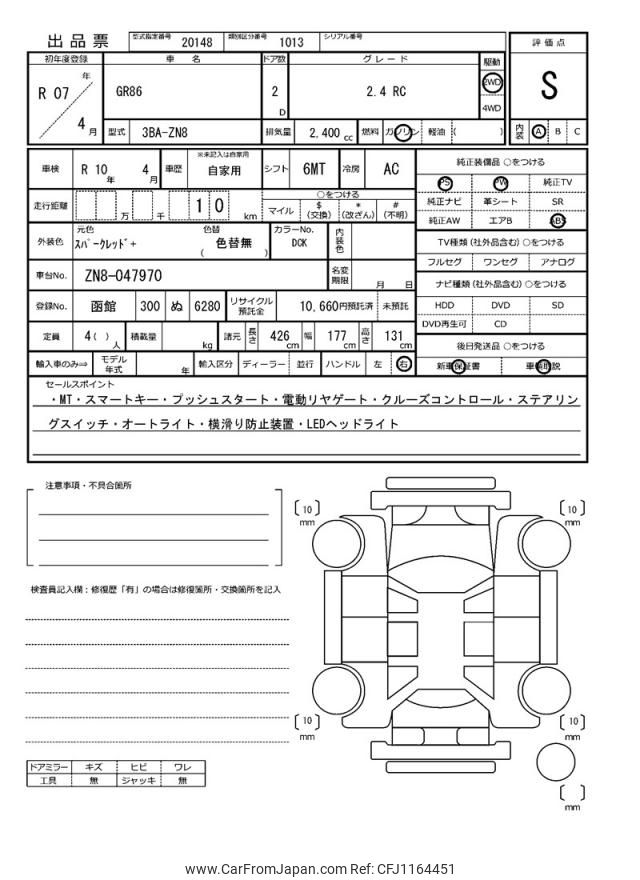 出品票 型式指定番号 20148 類別区分番号 1013 シリアル番号
評価点
S
内装 A B C
初年度登録 車名 ドア数 グレード 駆動
R 07 年 4 月 GR86 2 D 2.4 RC 2WD 4WD
型式 3BA-ZN8 排気量 2,400 cc 燃料 ガソリン 軽油 ( )
車検 R 10 年 4 月 車歴 ※未記入は自家用 自家用 シフト 6MT 冷房 AC
走行距離 万 千 1 0 km ○をつける
マイル $ (交換) * (改ざん) # (不明)
外装色 元色 スパークレッド+ 色替 ( 色替無 ) カラーNo. DCK 内装色
車台No. ZN8-047970 名変期限 月 日
登録No. 函館 300 ぬ 6280 リサイクル預託金 10,660円預託済 未預託
定員 4( ) 人 積載量 kg 諸元 長さ 426 cm 幅 177 cm 高さ 131 cm
輸入車のみ⇒ モデル年式 年 輸入区分 ディーラー 並行 ハンドル 左 右
純正装備品 ○をつける
PS PW 純正TV
純正ナビ 革シート SR
純正AW エアB ABS
TV種類 (社外品含む) ○をつける
フルセグ ワンセグ アナログ
ナビ種類 (社外品含む) ○をつける
HDD DVD SD
DVD再生可 CD
後日発送品 ○をつける
新車保証書 車輌取説
セールスポイント
・MT・スマートキー・プッシュスタート・電動リヤゲート・クルーズコントロール・ステアリン
グスイッチ・オートライト・横滑り防止装置・LEDヘッドライト
注意事項・不具合箇所
検査員記入欄:修復歴「有」の場合は修復箇所・交換箇所を記入
[ 10 ] mm [ 10 ] mm
[ 10 ] mm [ 10 ] mm
[ ] mm
ドアミラー キズ ヒビ ワレ
工具 無 ジャッキ 無
www.CarFromJapan.com Ref: CFJ1164451